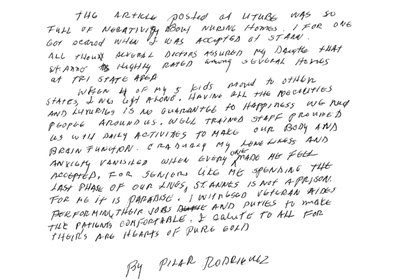 THE ARTICLE posted at UTUBE WAS SO
FULL OF NEGATIVITY ABOUT NURING HOMES. I FOR ONE
GOT SCARED WHEN I WAS ACCEPTED AT ST ANN.
ALL THOUGH SEVERAL DOCTORS ASSURED MY DAUTHE THAT
ST ANNE IS HIGHLY RATED among SEVERAL HOMES
AT TRI STATE AREA
WHEN 4 OF MY 5 KIDS moved TO OTHER
STATES, I WAS LEFT ALONE. HAVING ALL THE NECESSITIES
AND LUXURIES IS NO GUARANTEE TO HAPPINESS WE HAD
PEOPLE AROUND US. WELL TRAINED STAFF PROVIDED
US WITH DAILY ACTIVITIES TO MAKE OUR BODY AND
BRAIN FUNCTION. GRADUALLY MY LONELINESS AND
ANXIETY VANISHED WHEN EVERY ONE MADE ME FEEL
ACCEPTED, FOR SENIORS LIKE ME SPENDING THE
LAST PHASE OF OUR LIVES, ST ANNES IS NOT A PRISON.
FOR ME IT IS PARADISE. I WITNESSED VETERAN AIDES
PERFORMING THEIR JOBS AND DUTIES TO MAKE
THE PATIENTS COMFORTABLE. I SALUTE TO ALL FOR
THEIRS ARE HEARTS OF PURE GOLD
By PILAR RODRIGUEZ